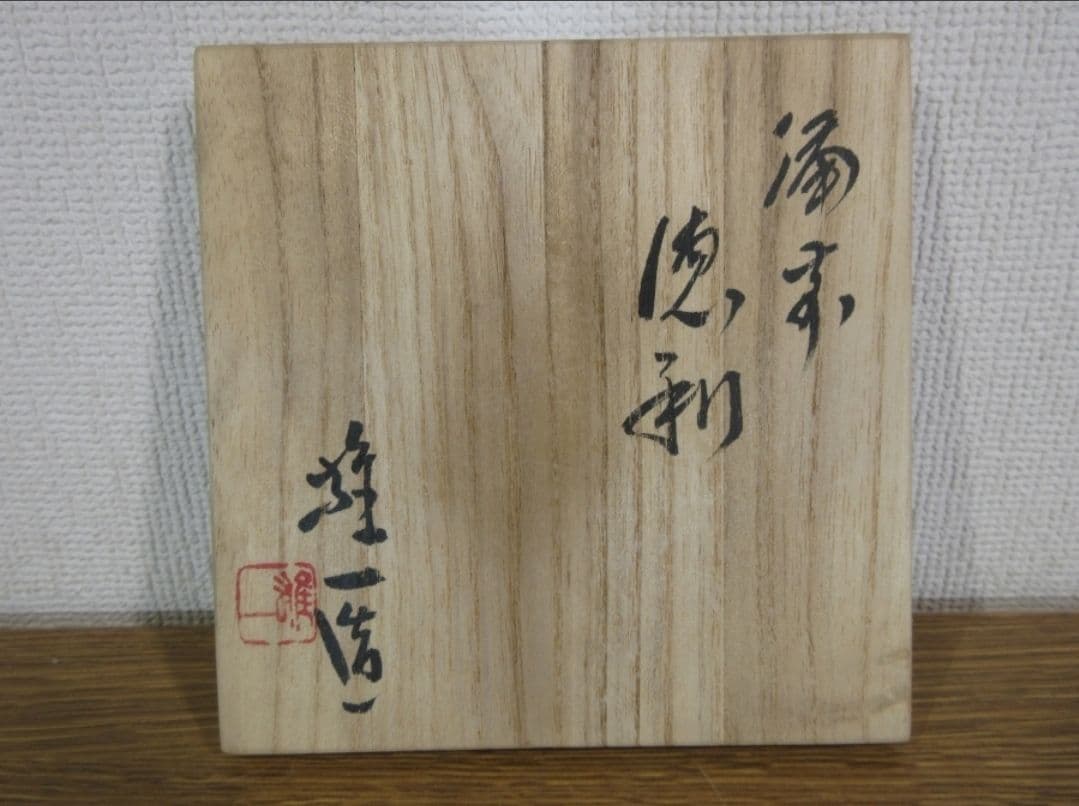 備前
徳利
雄一造
雄一